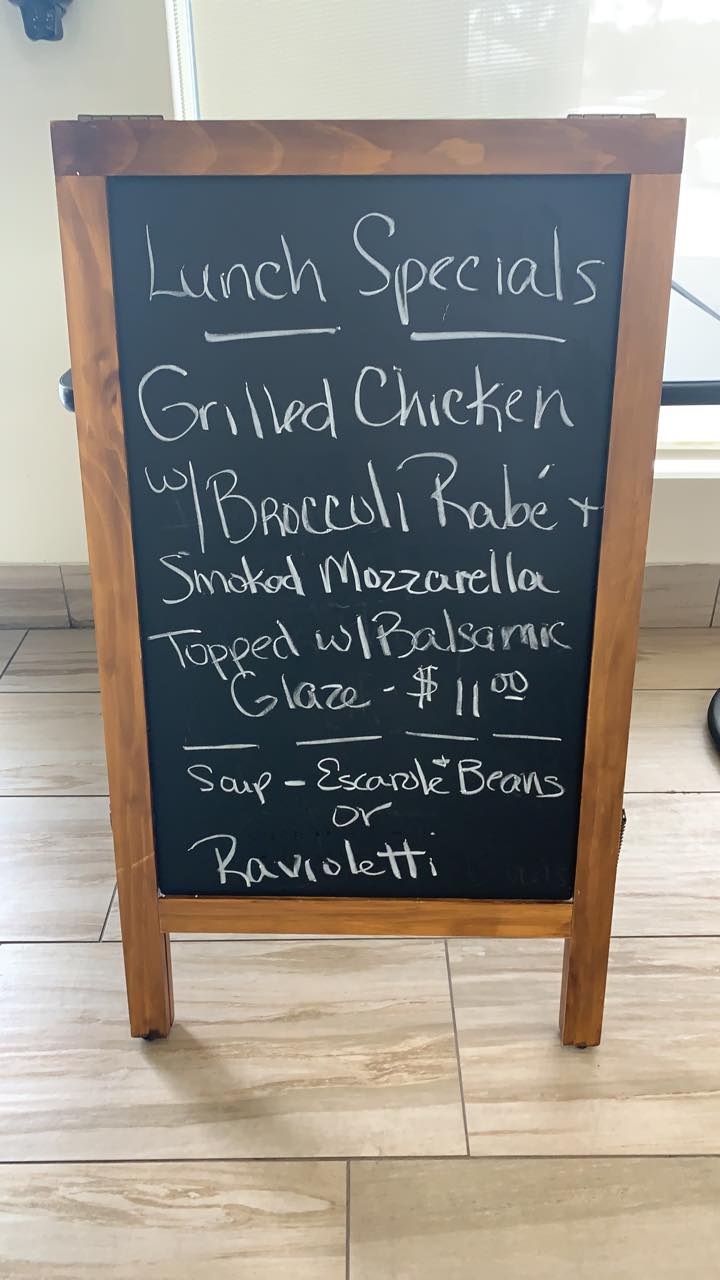 Lunch Specials
Grilled Chicken
w/Broccoli Rabé +
Smoked Mozzarella
Topped w/Balsamic
Glaze - $11.00
Soup - Escarole + Beans
or
Ravioletti